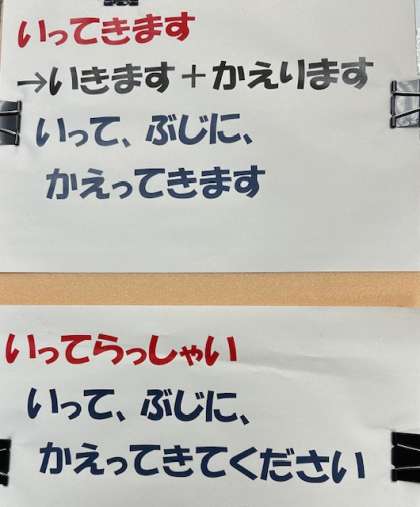 いってきます
→いきます＋かえります
いって、ぶじに、
かえってきます
いってらっしゃい
いって、ぶじに、
かえってきてください